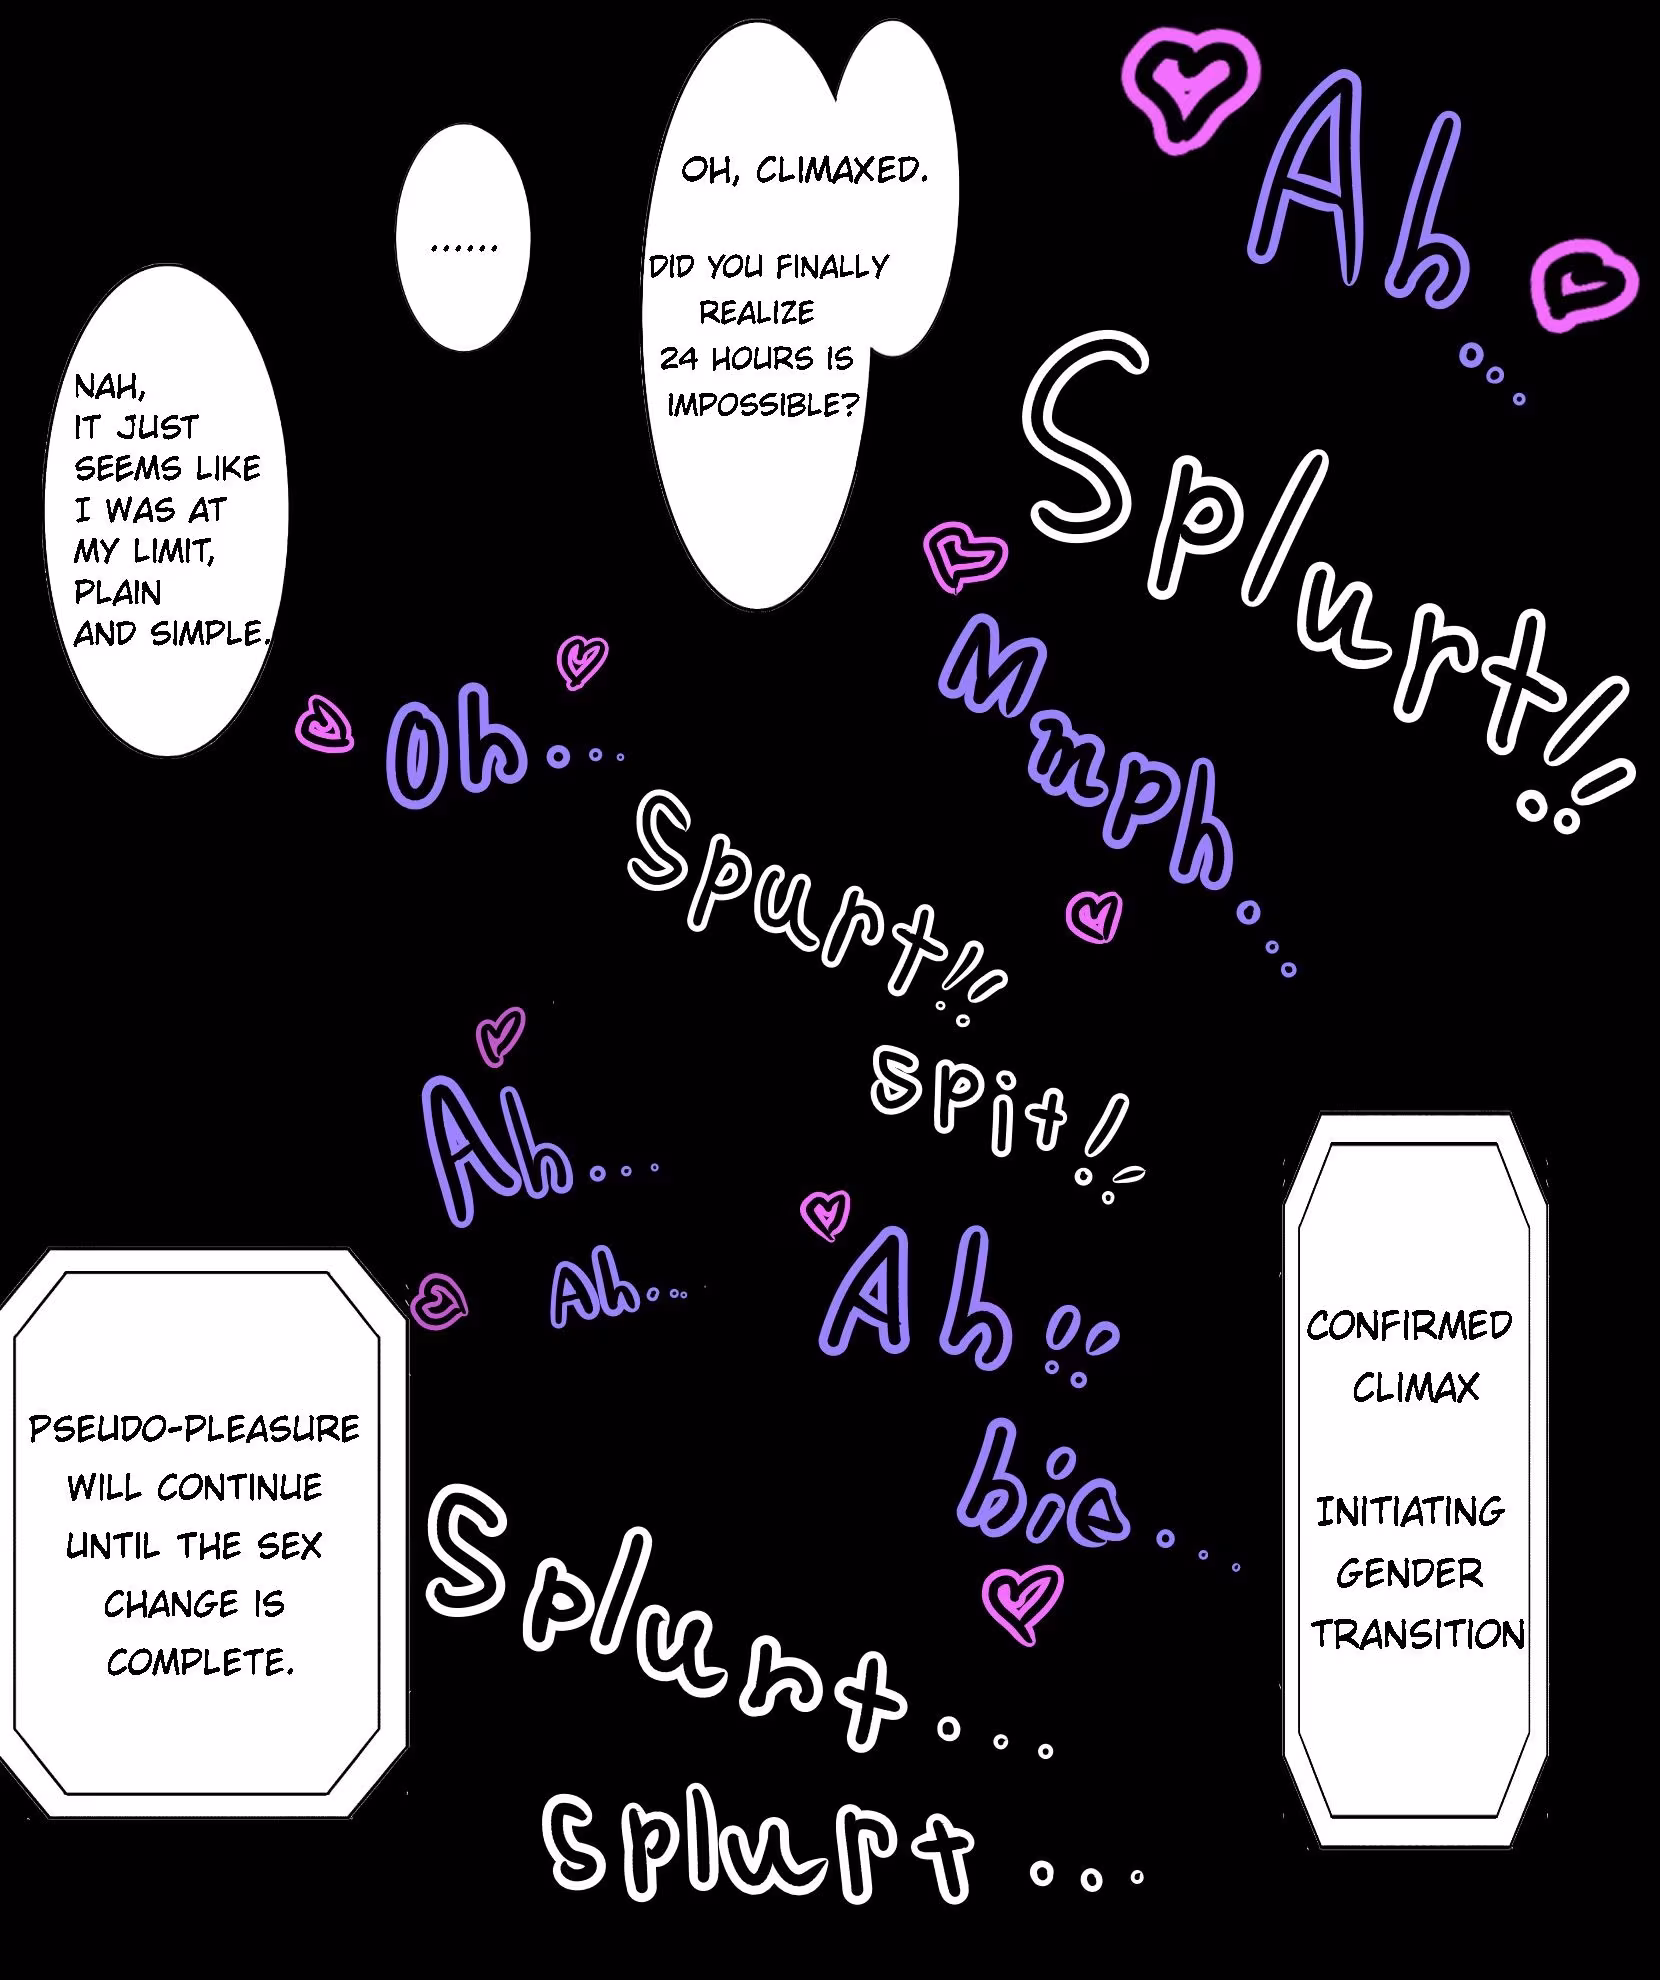 Ah...
OH, CLIMAXED.
DID YOU FINALLY
REALIZE
24 HOURS IS
IMPOSSIBLE?
......
NAH,
IT JUST
SEEMS LIKE
I WAS AT
MY LIMIT,
PLAIN
AND SIMPLE.
Splurt!!
Mmph...
Oh...
Spurt!!
spit!!
Ah...
Ah...
Ah!!
bie...
CONFIRMED
CLIMAX
INITIATING
GENDER
TRANSITION
PSEUDO-PLEASURE
WILL CONTINUE
UNTIL THE SEX
CHANGE IS
COMPLETE.
Splurt...
Splurt...